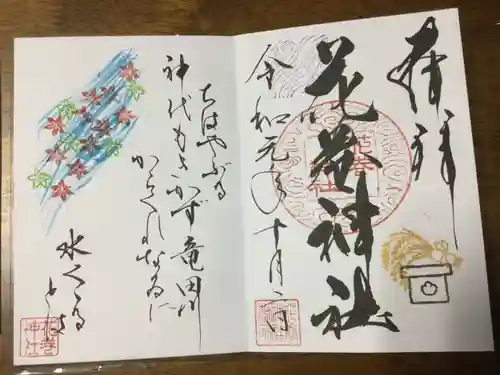 奉拝
花巻神社
令和元年十月二日
ちはやぶる
神代もきかず竜田川
からくれなゐに
水くくる
とは
花巻
神社